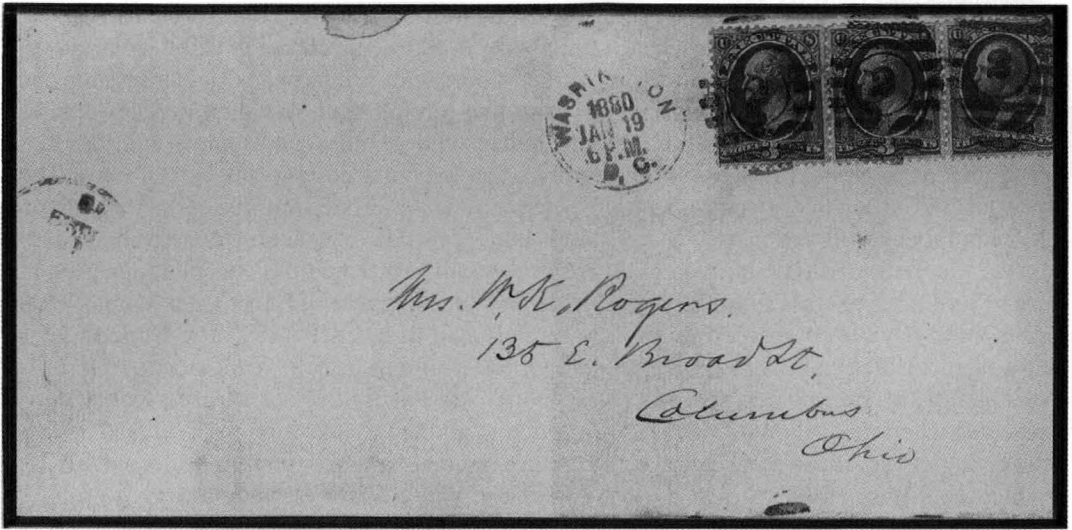 WASHINGTON
1880
JAN 19
6 P.M.
D. C.
Mrs. W. K. Rogers.
135 E. Broad St.
Columbus
Ohio